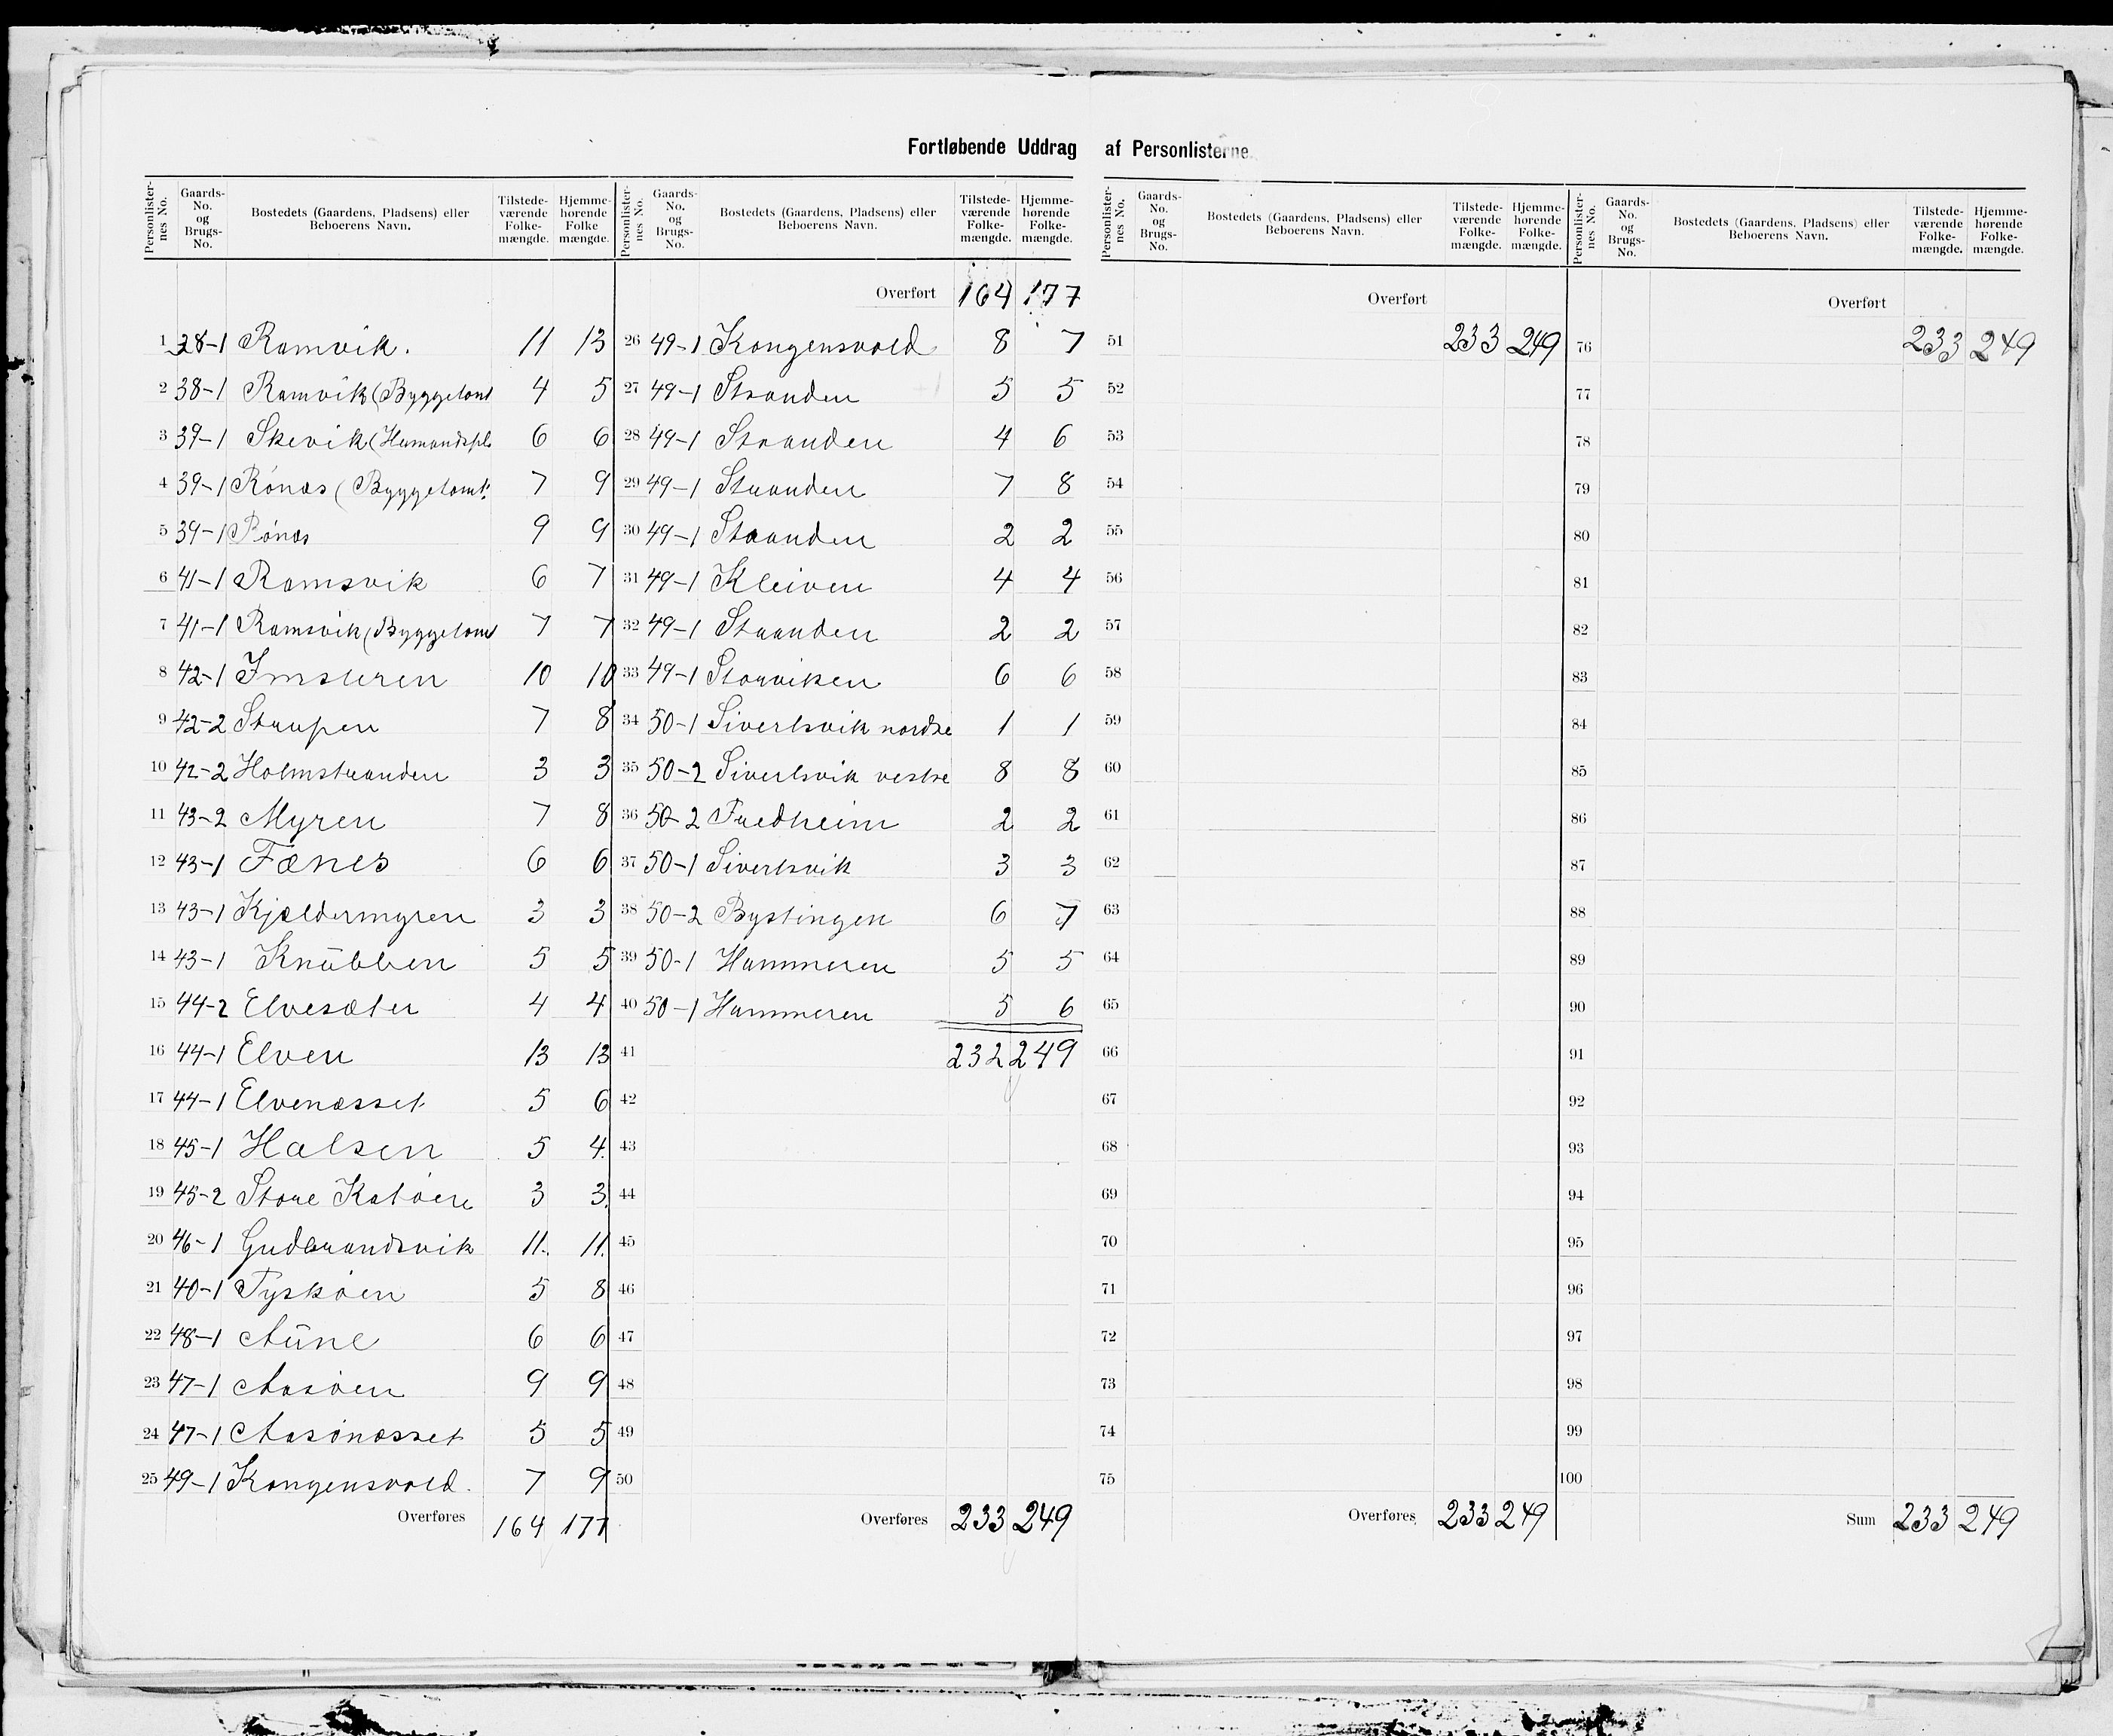 Fortløbende Uddrag af Personlisterne.
Personlister-nes No. Gaards-No. og Brugs-No. Bostedets (Gaardens, Pladsens) eller Beboerens Navn. Tilstede-værende Folke-mængde. Hjemme-hørende Folke mængde.
1 38-1 Ramvik. 11 13
2 38-1 Ramvik (Byggetomt 4 5
3 39-1 Skevik (Husmandspls 6 6
4 39-1 Rónæs (Byggetomt. 7 9
5 39-1 Rónæs 9 9
6 41-1 Ramsvik 6 7
7 41-1 Ramsvik (Byggetomt 7 7
8 42-1 Imsteren 10 10
9 42-2 Straupen 7 8
10 42-2 Holmstranden 3 3
11 43-2 Myren 7 8
12 43-1 Fænes 6 6
13 43-1 Kjældermyren 3 3
14 43-1 Knubben 5 5
15 44-2 Elvesæter 4 4
16 44-1 Elven 13 13
17 44-1 Elvenæsset 5 6
18 45-1 Halsen 5 4
19 45-2 Store Katóen 3 3
20 46-1 Gudbrandsvik 11 11
21 40-1 Tyskóen 5 8
22 48-1 Aune 6 6
23 47-1 Aasóen 9 9
24 47-1 Aasónæsset 5 5
25 49-1 Kongensvold. 7 9
Overføres 164 177
Personlister-nes No. Gaards-No. og Brugs-No. Bostedets (Gaardens, Pladsens) eller Beboerens Navn. Tilstede-værende Folke-mængde. Hjemme-hørende Folke-mængde.
Overført 164 177
26 49-1 Kongensvold 8 7
27 49-1 Stranden 5 5
28 49-1 Stranden 4 6
29 49-1 Stranden 7 8
30 49-1 Stranden 2 2
31 49-1 Kleiven 4 4
32 49-1 Stranden 2 2
33 49-1 Storviken 6 6
34 50-1 Sivertsvik nordre 1 1
35 50-2 Sivertsvik vestre 8 8
36 50-2 Fredheim 2 2
37 50-1 Sivertsvik 3 3
38 50-2 Bystingen 6 7
39 50-1 Hammeren 5 5
40 50-1 Hammeren 5 6
41 232 249
42
43
44
45
46
47
48
49
50
Overføres 233 249
Personlister-nes No. Gaards-No. og Brugs-No. Bostedets (Gaardens, Pladsens) eller Beboerens Navn. Tilstede-værende Folke-mængde. Hjemme-hørende Folke-mængde.
Overført
51 233 249
52
53
54
55
56
57
58
59
60
61
62
63
64
65
66
67
68
69
70
71
72
73
74
75
Overføres 233 249
Personlister-nes No. Gaards-No. og Brugs-No. Bostedets (Gaardens, Pladsens) eller Beboerens Navn. Tilstede-værende Folke-mængde. Hjemme-hørende Folke-mængde.
Overført
76 233 249
77
78
79
80
81
82
83
84
85
86
87
88
89
90
91
92
93
94
95
96
97
98
99
100
Sum 233 249